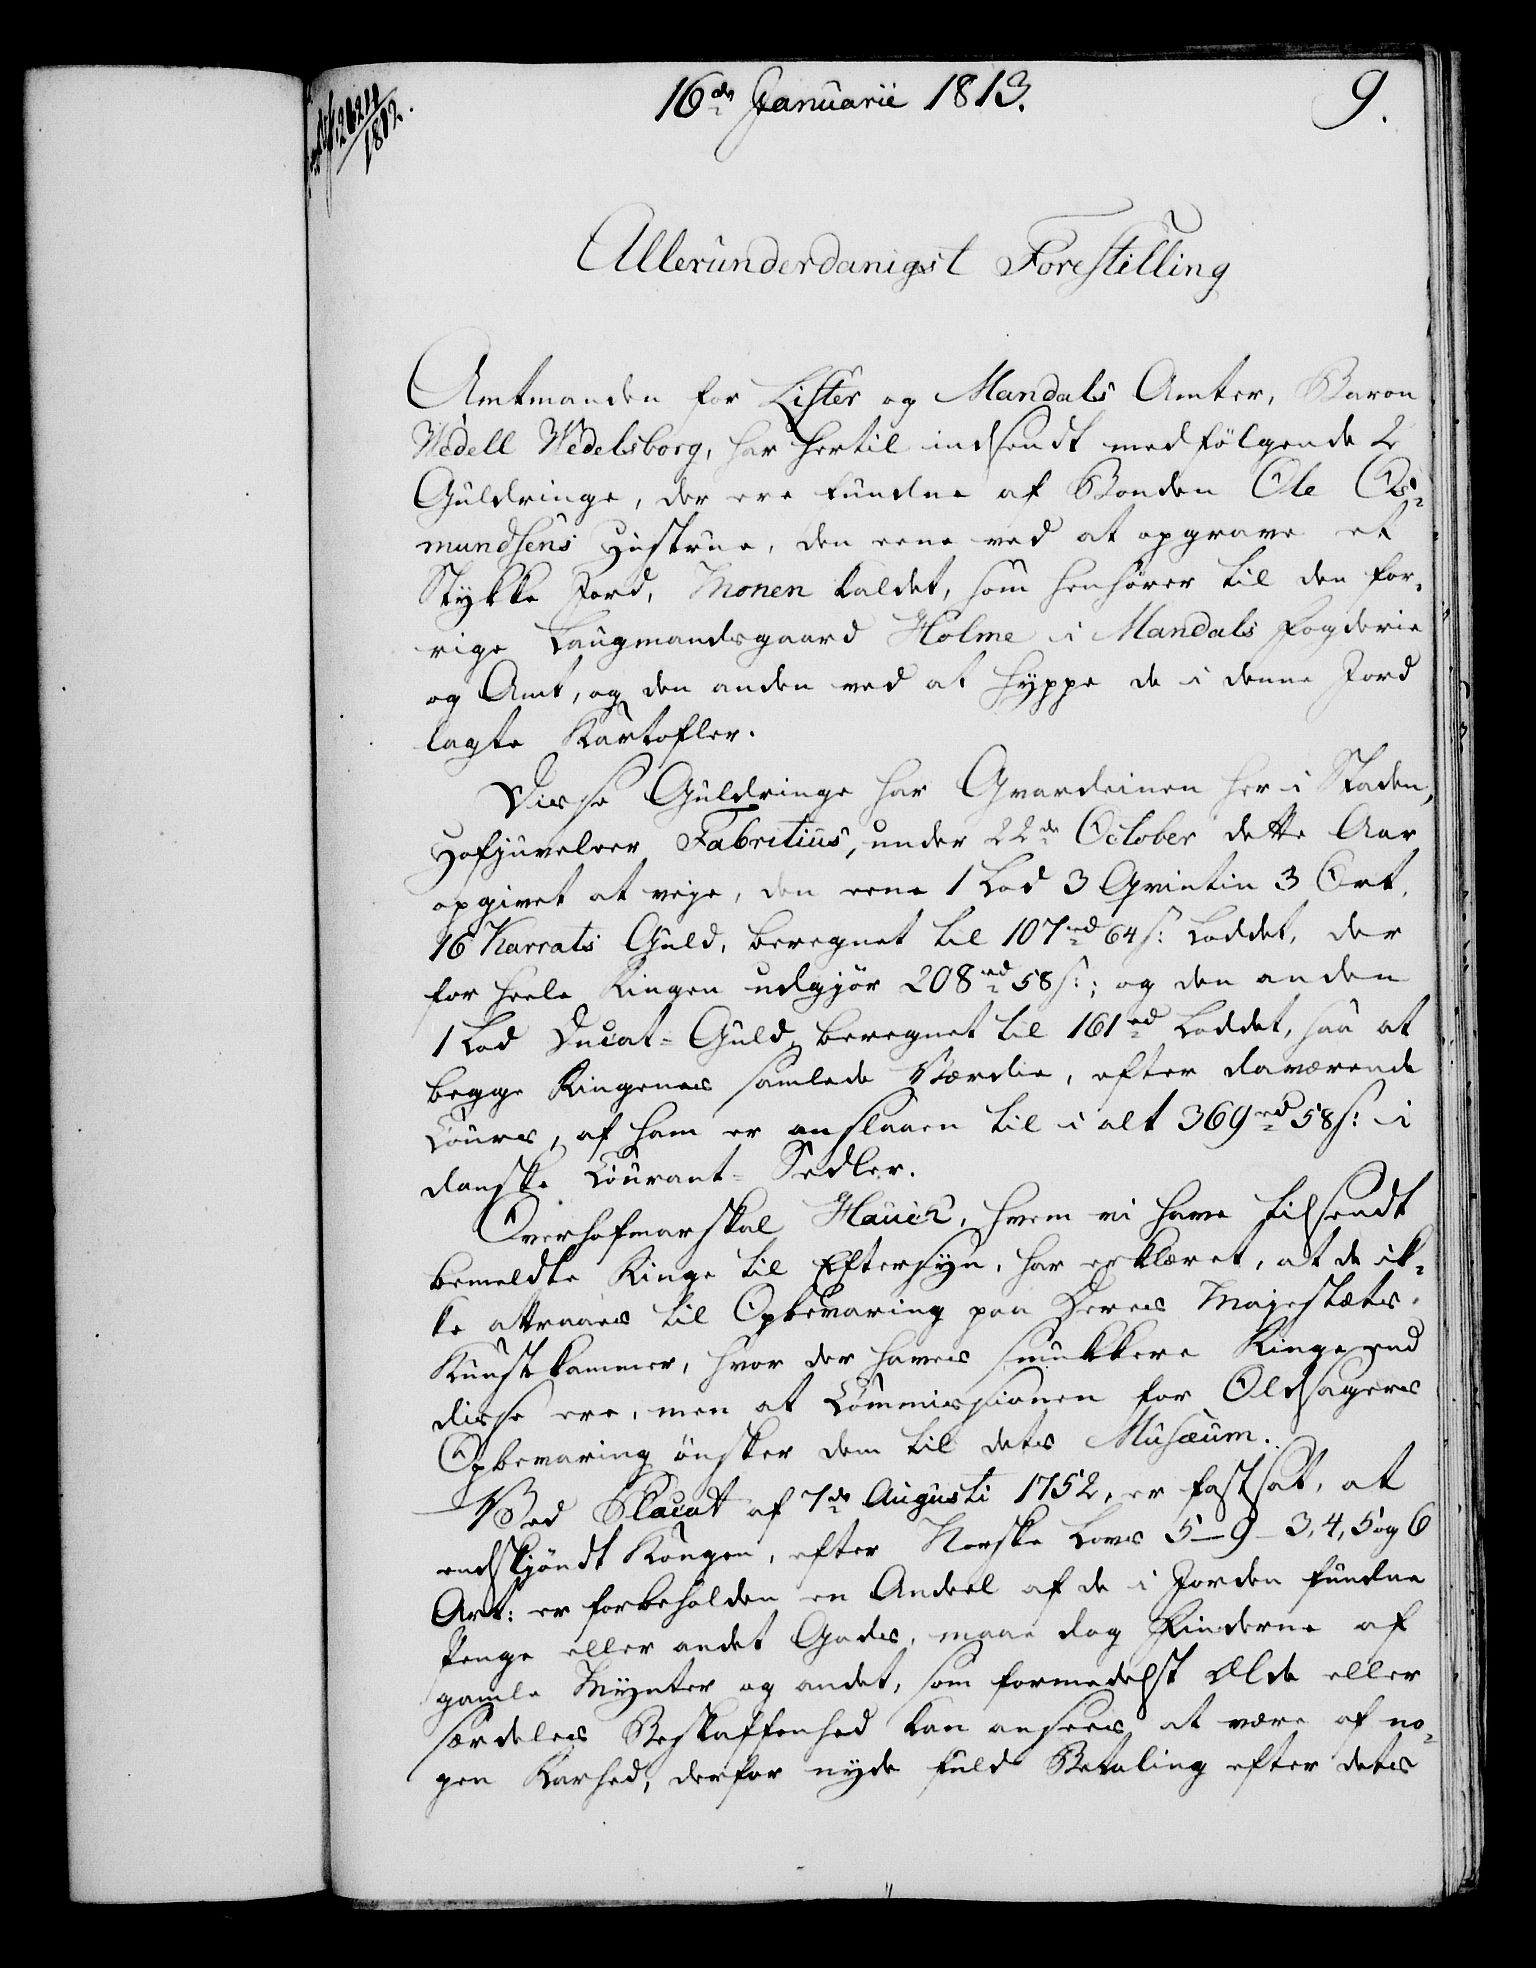 16de Januarii 1813.
9.
2424
1812.
Allerunderdanigst Forestilling
Amtmanden for Lister og Mandals Amter, Baron
Wedell Wedelsborg, har hertil indsendt medfölgende 2
Guldringe, der ere fundne af Bonden Ole Os-
mundsens Hustrue, den eene ved at opgrave et
Stykke Jord, Monen kaldet, som henhörer til den for-
rige Laugmandsgaard Holme i Mandals Fogderie
og Amt, og den anden ved at hyppe de i denne Jord
lagte Kartofler.
Disse Guldringe har Gvardeinen her i Staden,
Hofjuveleer Fabritius, under 22de October dette Aar
opgivet at veje, den eene 1 Lod 3 Qvintin 3 Ort,
16 Karrats Guld, beregnet til 107rd 64 s: Loddet, der
for heele Ringen udgjör 208rd 58 s:; og den anden
1 Lod Ducat-Guld, beregnet til 161rd Loddet, saa at
begge Ringenes samlede Værdie, efter daværende
Cours, af ham er anslaaen til i alt 369rd 58 s: i
danske Courant-Sedler.
Overhofmarskal Hauch, hvem vi have tilsendt
bemeldte Ringe til Eftersyn, har erklæret, at de ik-
ke attraaes til Opbevaring paa Deres Majestæts
Kunstkammer, hvor der haves smukkere Ringe end
disse ere, men at Commissionen for Oldsagers
Opbevaring önsker dem til dets Musæum.
Ved Placat af 7de Augusti 1752, er fastsat, at
endskjöndt Kongen, efter Norske Lovs 5-9-3, 4, 5 og 6
Art: er forbeholden en Andeel af de i Jorden fundne
Penge eller andet Gods, maae dog Finderne af
gamle Mynter og andet, som formedelst Ælde eller
særdeles Beskaffenhed kan ansees at være af no-
gen Rarhed, derfor nyde fuld Betaling efter dets